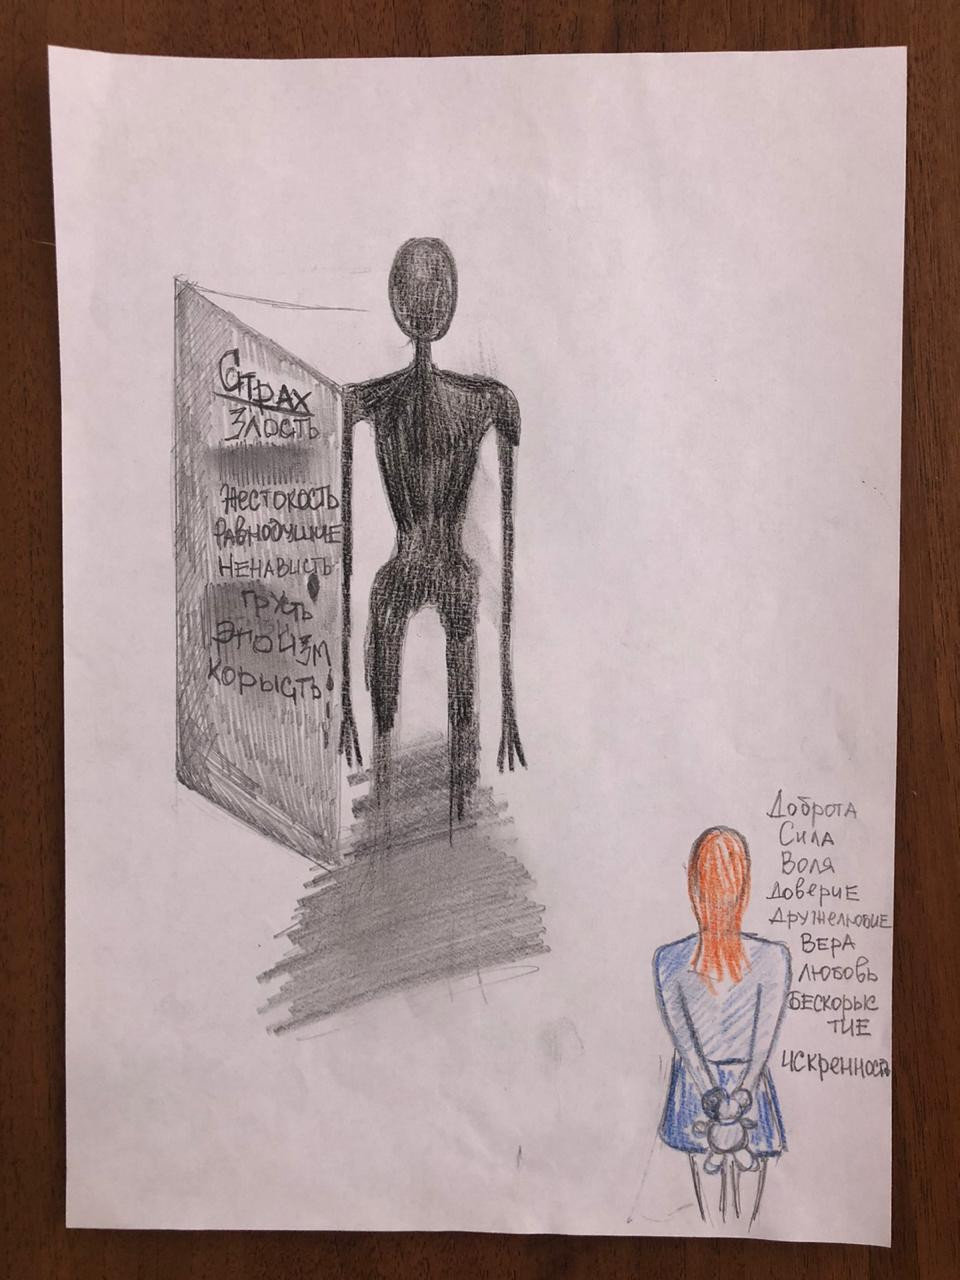 Страх
Злость
Жестокость
Равнодушие
Ненависть
Грусть
Эгоизм
Корысть
Доброта
Сила
Воля
Доверие
Дружелюбие
Вера
Любовь
Бескорыс
тие
Искренность